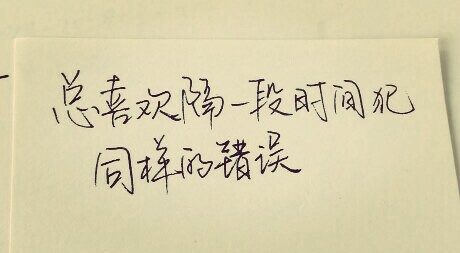 总喜欢隔一段时间犯
同样的错误